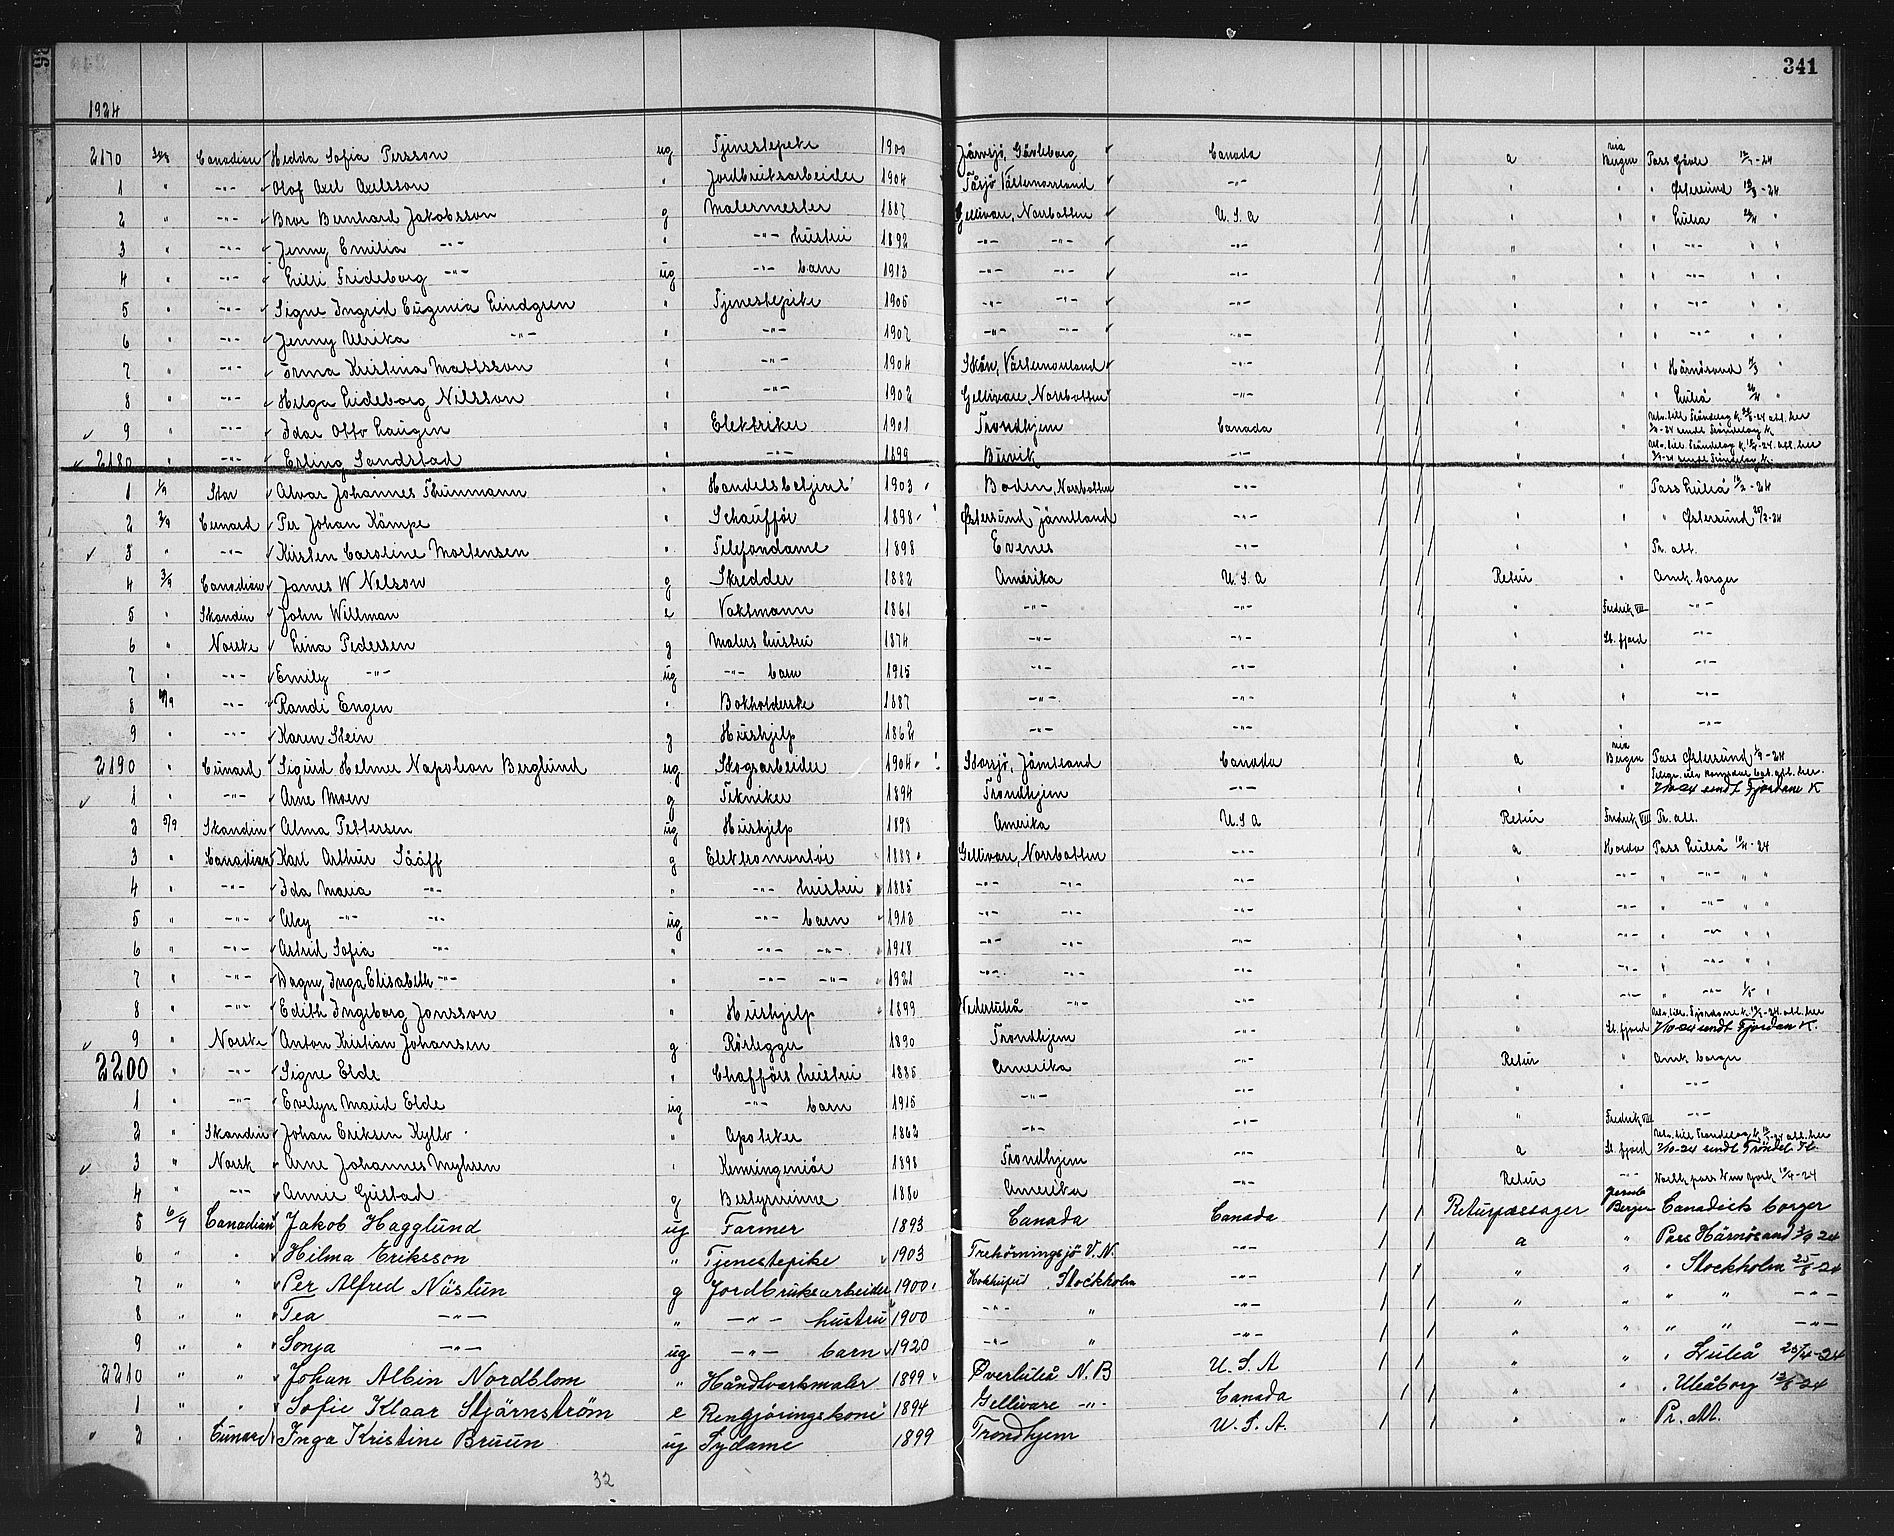 341
1924
2170 30/8 Canadian Hedda Sofia Persson ug Tjenestepike 1900 Järvsjö, Gävleborg Canada a via Bergen Pass Gävle 12/7-24
1 " -"- Olof Axel Axelsson " Jordbruksarbeider 1904 Tåsjö Västernorrland -"- " " " Østersund 12/3-24
2 " -"- Bror Bernhard Jakobsson g Malermester 1887 Gellivare, Norrbotten U.S.a " " " Luleå 24/4 "
3 " -"- Jenny Emilia -"- " -"- hustru 1892 -"- -"- -"- " " " -"- " "
4 " -"- Lilli Frideborg -"- ug -"- barn 1913 -"- -"- -"- " " " -"- " "
5 " -"- Signe Ingrid Eugenia Lindgren " Tjenestepike 1905 -"- -"- -"- " " " -"- " "
6 " -"- Jenny Ulrika -"- " -"- 1907 -"- -"- -"- " " " -"- " "
7 " -"- Irma Kristina Mattsson " -"- 1904 Skön, Västernorrland -"- " " " Härnösand "
8 " -"- Helga Lideborg Nilsson " -"- 1902 Gellivare, Norrbotten -"- " " " Luleå "
9 " -"- Idar Otto Laugen " Elektriker 1901 Trondhjem Canada " " Utv. till. Trøndelag K. att. her sendt Trøndelag K.
2180 " -"- Erling Sandstad " -"- 1899 Buvik -"- " " Utv. till. Trøndelag K. att. her sendt Trøndelag K.
1 1/9 Star Alvar Johannes Thunmann " Handelsbetjent 1903 Boden, Norrbotten -"- " " Pass Luleå 12/2-24
2 2/9 Cunard Per Johan Kämpe " Schauffør 1898 Østersund Jämtland -"- " " " Østersund 21/2-24
3 " -"- Kirsten Caroline Mortensen " Telefondame 1898 Evenes -"- " " Pr. att.
4 3/9 Canadian James W Nelson g Skredder 1882 Amerika U.S.a Retur " Amk. borger
5 " Skandin John Willman e Vaktmann 1861 -"- -"- " Fredrik VIII -"-
6 " Norske Lina Pedersen g Malers hustru 1874 -"- -"- " St. fjord -"-
7 " -"- Emily -"- ug -"- barn 1915 -"- -"- " " -"-
8 4/9 -"- Randi Engen " Bokholderske 1887 -"- -"- " " -"-
9 " -"- Karen Stein g Hushjelp 1862 -"- -"- " " -"-
2190 " Cunard Sigurd Helmer Napoleon Berglund ug Skogsarbeider 1904 Storsjö, Jämtland Canada a via Bergen Pass Østersund 1/9-24
1 " -"- Arne Moen g Tekniker 1894 Trondhjem -"- " " att. her 7/10-24 sendt Fjordane K
2 5/9 Skandin Alma Pettersen ug Hushjelp 1898 Amerika U.S.a Retur Fredrik VIII Pr. att.
3 " Canadian Karl Arthur Sääff g Elektromontør 1888 Gellivare, Norrbotten -"- a Horda Pass Luleå 12/4-24
4 " -"- Ida Maria -"- " -"- hustru 1885 -"- -"- -"- " -"- " -"- " "
5 " -"- Aley -"- -"- ug -"- barn 1913 -"- -"- -"- " -"- " -"- " "
6 " -"- Astrid Sofia -"- " -"- -"- 1918 -"- -"- -"- " -"- " -"- " "
7 " -"- Dagny Inga Elisabeth -"- " -"- -"- 1921 -"- -"- -"- " -"- " -"- " "
8 " -"- Edith Ingeborg Jonsson " Hushjelp 1899 Nederluleå -"- -"- " -"- " -"- 1/5 "
9 " Norske Anton Kristian Johansen g Rørlegger 1890 Trondhjem -"- " St. fjord Utv. till. Fjordane K. att. her 7/10-24 sendt Fjordan K.
2200 " -"- Signe Elde " Chafførs hustru 1885 Amerika -"- Retur " Amk borger
1 " -"- Evelyn Maud Elde ug -"- barn 1915 -"- -"- " " -"-
2 " Skandin Johan Eriksen Kyllo " Apoteker 1862 -"- -"- " Fredrik VIII -"-
3 " Norsk Arne Johannes Myhren " Kemingeniør 1898 Trondhjem -"- a St. fjord Utv. till Trøndelag K. att. her 7/10-24 sendt Trøndel K.
4 " -"- Annie Gustad g Bestyrerinne 1880 Amerika -"- Retur -"- Norsk pass New York
5 6/9 Canadian Jakob Hagglund ug Farmer 1893 Canada Canada Returpassager Bergen Canadisk borger
6 " " Hilma Eriksson " Tjenestepike 1903 Trehörningsjö V.N. -"- a " Pass Härnösand 24
7 " " Per Alfred Näslun g Jordbruksarbeider 1900 Stockholm -"- " " " Stockholm 25/8-24
8 " " Tea -"- " -"- hustru 1900 -"- " -"- " " " " -"-
9 " " Sonja -"- ug -"- barn 1920 -"- " -"- " " " " -"-
2210 " " Johan Albin Nordblom " Håndtverksmaler 1899 Øverluleå N.B U.S.A " " " Luleå 25/4-24
1 " " Sofie Klaar Stjärnström e Rengjøringskone 1894 Gellivare -"- Canada " " " Uleåborg 12/8-24
2 " Cunard Inga Kristine Bruun ug Sydame 1899 Trondhjem U.S.A. " " Pr. att.
32